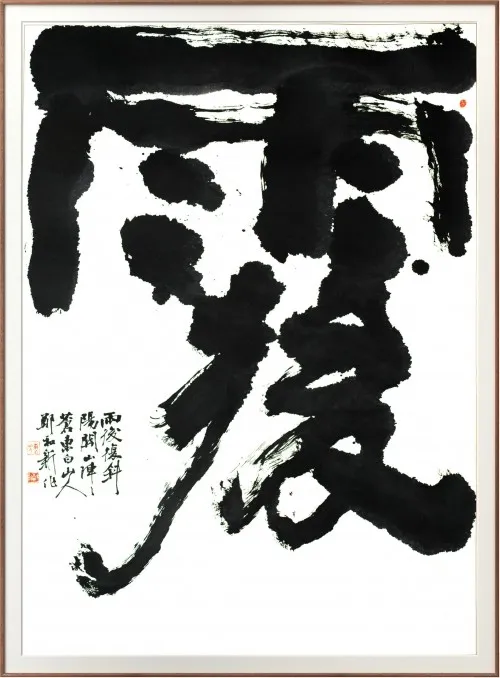 雨後
雨後復斜
陽關山陣々
蒼東白山人
鄭和新作